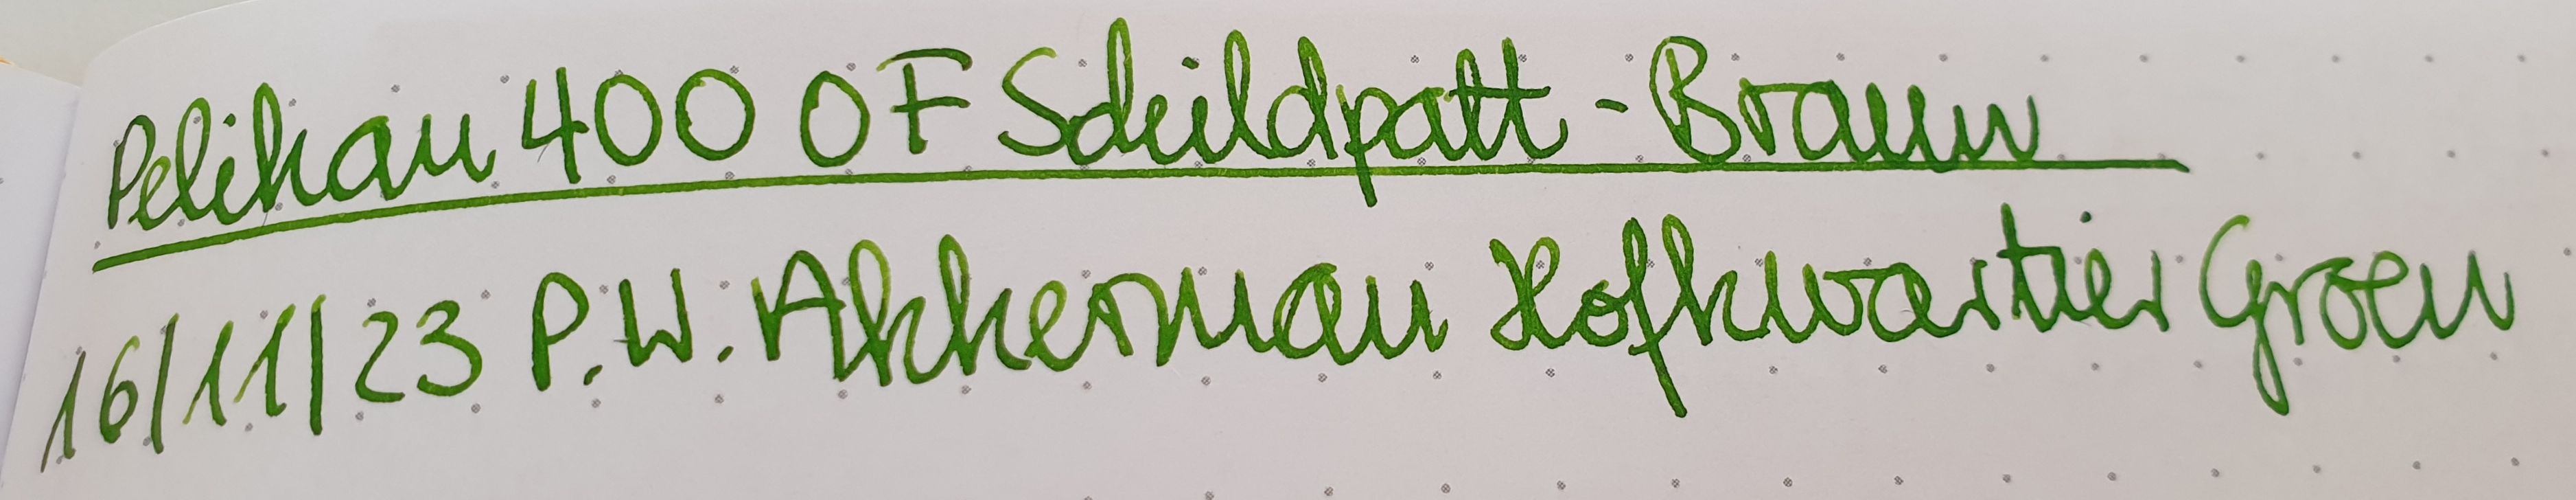 Pelikan 400 OF Schildpatt - Braun
16/11/23 P.W. Akkerman Hofkwartier Groen